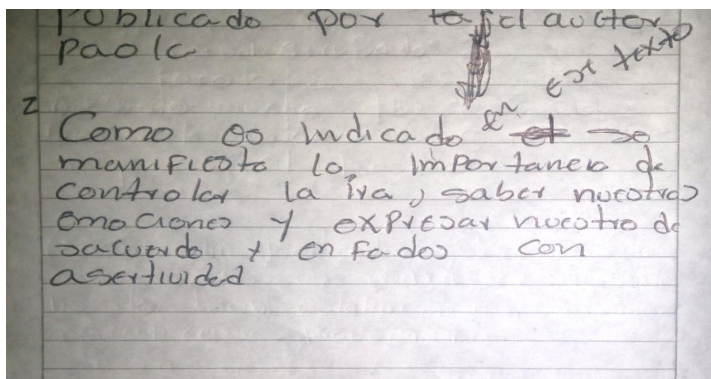 Publicado por el auctor
Paola
2
Como es Indicado en este texto se
manifiesta la importancia de
controlar la ira, saber nuestras
emociones y expresar nuestro de
sacuerdo y enfados con
asertividad